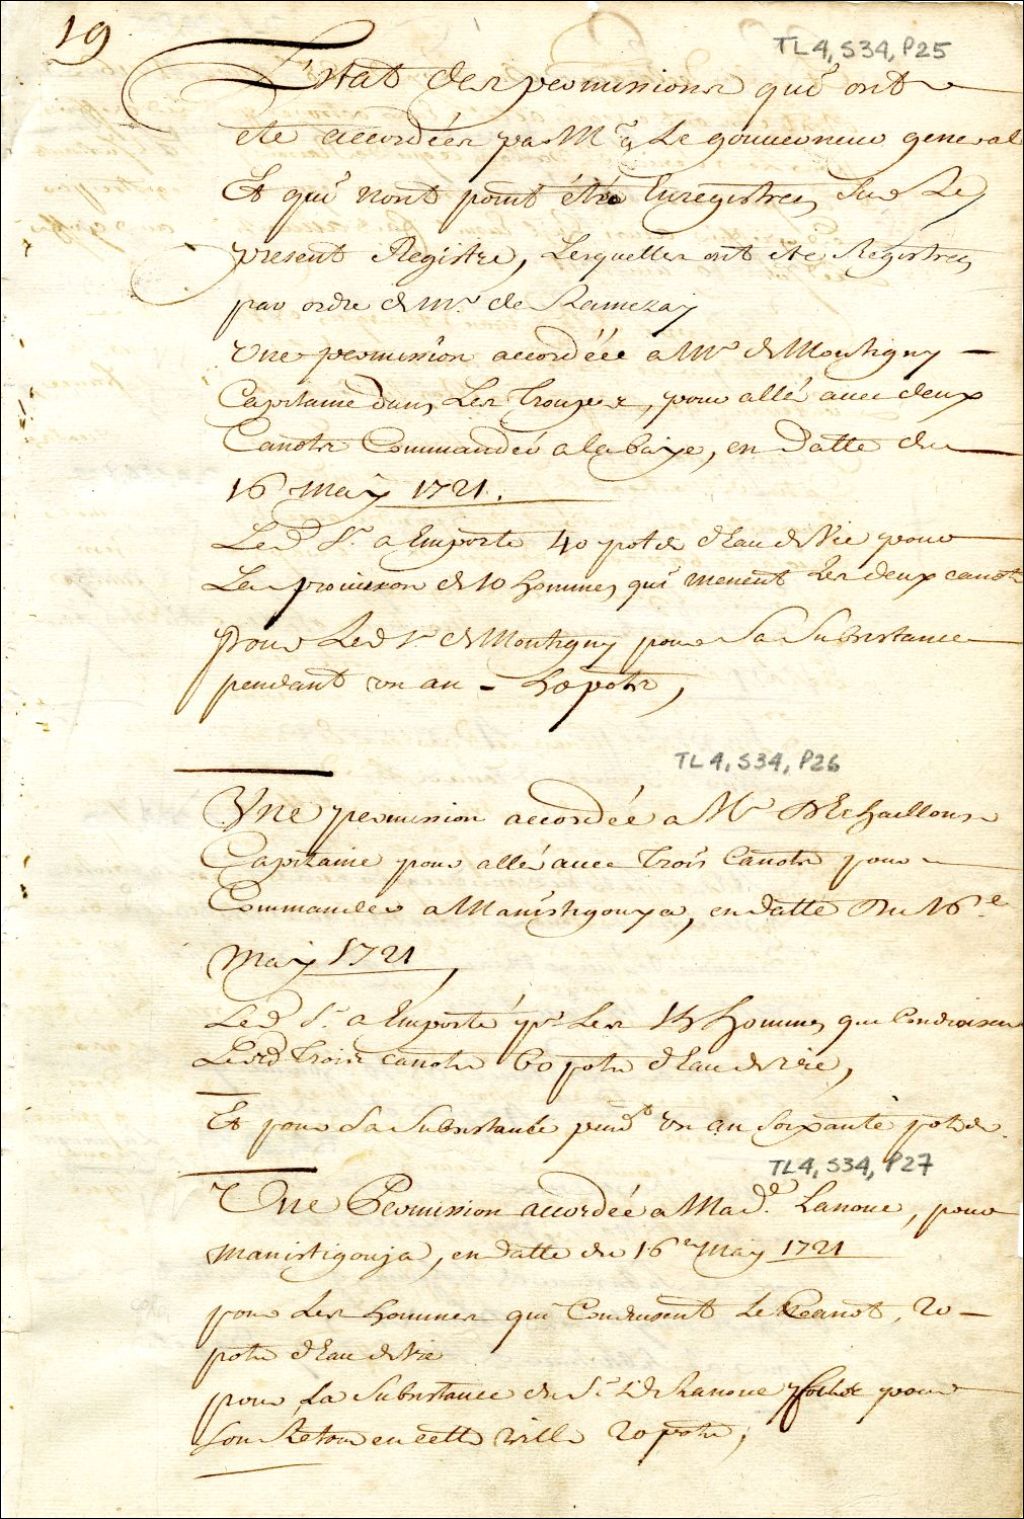 19
TL4, S34, P25
Estat des permissions qui ont
ete accordées par Mr Le gouverneur general
Et qui nont point été Enregistrez sur Le
present Registre, Lesquelles ont ete Registrez
par ordre de Mr. de Ramezay
Une permission accordéée a Mr de Montigny
Capitaine dans Les Trouppes, pour allé avec deux
Canots Commander a la baye, en datte du
16 may 1721.
Led. Sr. a Emporté 40 pots d'Eau de Vie pour
La provision de 10 hommes qui menent Les deux canots
pour Led Sr. de Montigny pour Sa Subsistance
pendant un an - 40 pots,
TL4, S34, P26
Une permission accordée a Mr DEchaillons
Capitaine pour allé avec Trois Canots pour
Commander a Manistigouya, en datte Du 16e
May 1721,
Led Sr. a Emporté pr Les 15 hommes qui Conduisent
Lesd Trois canots 60 pots d'Eau de vie,
Et pour Sa Subsistance pendt un an soixante pots
TL4, S34, P27
Une Permission accordée a Made. Lanoue, pour
manistigouja, en datte du 16e May 1721
pour Les hommes qui Conduisent Le Canot, 20
pots d'Eau de Vie
pour La Subsistance du Sr. de Lanoue pour
Son Retour en cette ville 20 pots,